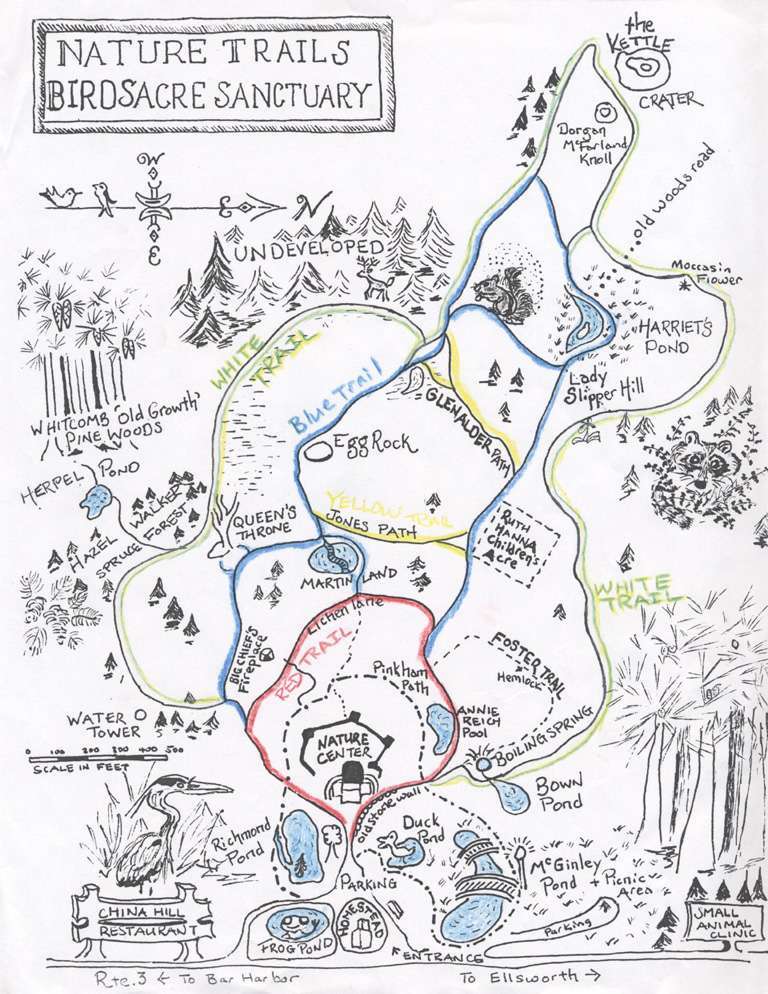 NATURE TRAILS
BIRDSACRE SANCTUARY
the
KETTLE
CRATER
Dorgan
McFarland
Knoll
old woods road
W
S
N
E
UNDEVELOPED
Moccasin
Flower
HARRIET'S
POND
Lady
Slipper Hill
WHITE
TRAIL
Blue Trail
GLENALDER PATH
Egg Rock
WHITCOMB 'Old Growth'
PINE WOODS
HERPEL POND
WALKER
FOREST
HAZEL
SPRUCE
QUEEN'S
THRONE
YELLOW TRAIL
JONES PATH
RUTH
HANNA
Children's
Acre
MARTIN LAND
Lichen lane
RED TRAIL
BIG CHIEF'S
Fireplace
Pinkham
Path
FOSTER TRAIL
Hemlock
WHITE
TRAIL
ANNIE
REICH
POOL
BOILING SPRING
BOWN
Pond
WATER
TOWER
0 100 200 300 400 500
SCALE IN FEET
NATURE
CENTER
old stone wall
Richmond
Pond
Duck
Pond
McGinley
Pond + Picnic
Area
PARKING
CHINA HILL
RESTAURANT
FROG POND
HOMESTEAD
ENTRANCE
Parking
SMALL
ANIMAL
CLINIC
Rte.3 ← To Bar Harbor
To Ellsworth →